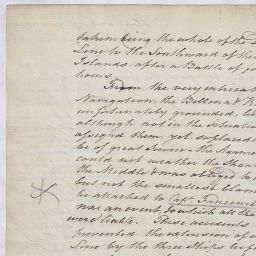 taken being the whole of the
Line to the Southward of the
Islands, after a Battle of
hours.
From the very intricate
Navigation, the Bellona & R
unfortunately grounded, b
although not in the situation
assigned them, yet so placed
be of great Service. the Agamem
could not weather the Shoal
the Middle & was obliged to
but not the smallest blame
be attached to Capt. Fancourt
was an event to which all the
were liable. These accidents
prevented the extension of
Line by the three Ships bef